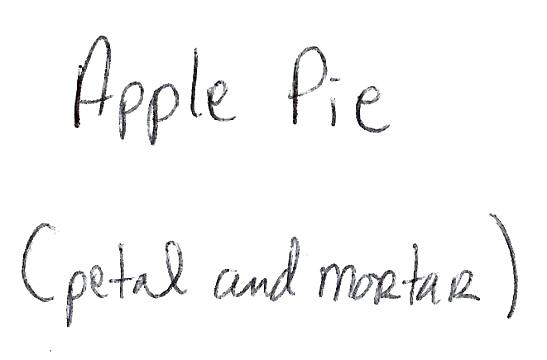 Apple Pie
(petal and mortar)